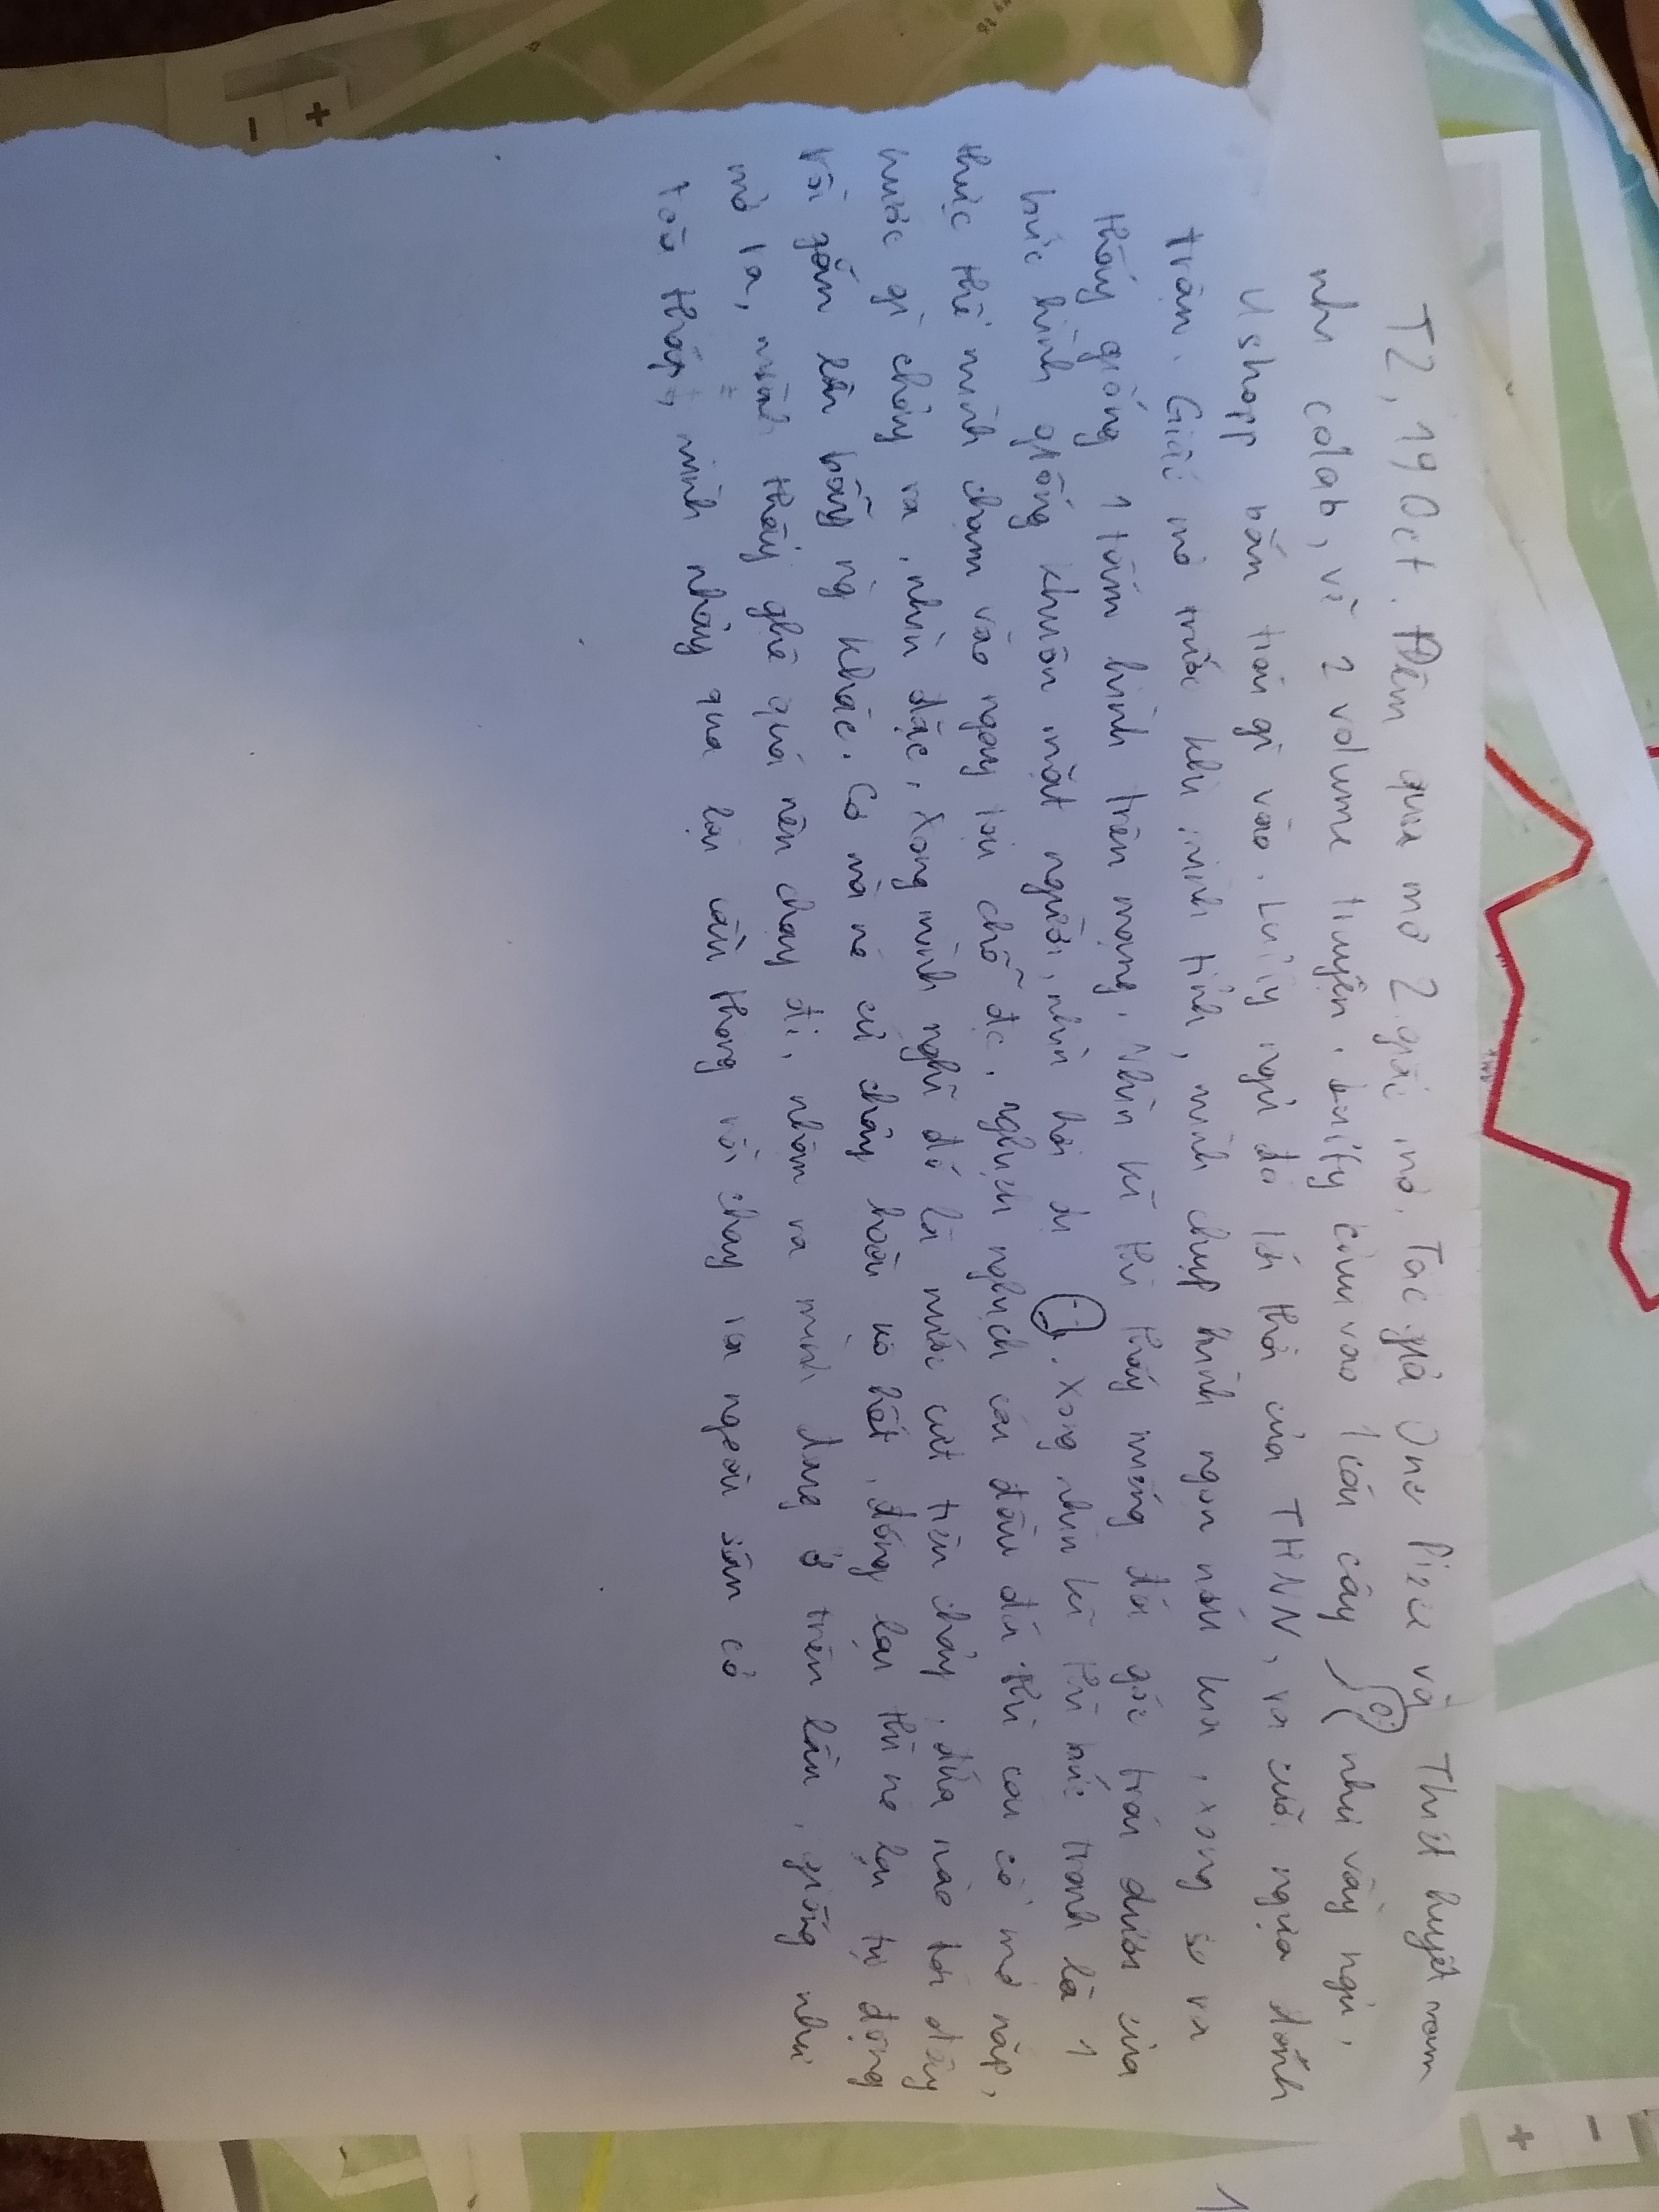 T2, 19 Oct. Đêm qua mơ 2 giấc mơ. Tác giả One Piece và Thiết huyết nam
nhi colab, vẽ 2 volume truyện. Luffy cắm vào 1 cái cây như vầy ngủ,
Ushopp bắn trái gì vào. Luffy ngủ đó tới thời của THNN, ra cưỡi ngựa đánh
trận. Giấc mơ trước khi mình tỉnh, mình chụp hình ngọn núi lửa, xong so ra
thấy giống 1 tấm hình trên mạng. Nhìn kĩ thì thấy miếng đá góc trái dưới của
bức hình giống khuôn mặt người, nhìn hơi dị. Xong nhìn kĩ thì bức tranh là 1
thực thể mình chạm vào ngay tại chỗ đc. nghịch nghịch cái đầu đá thì cái cổ mở nắp,
nước gì chảy ra, nhìn đặc, xong mình nghĩ đó là nước cứt tiên chảy, đứa nào tới đây
rồi gắn lên bẫy ng khác. Cơ mà nó cứ chảy hoài ko hết, đóng lại thì nó lại tự động
mở ra, mình thấy ghê quá nên chạy đi, nhận ra mình đang ở trên lầu, giống như
toà tháp, mình nhảy qua lại cầu thang rồi chạy ra ngoài sân cỏ
+
-
-
+
1